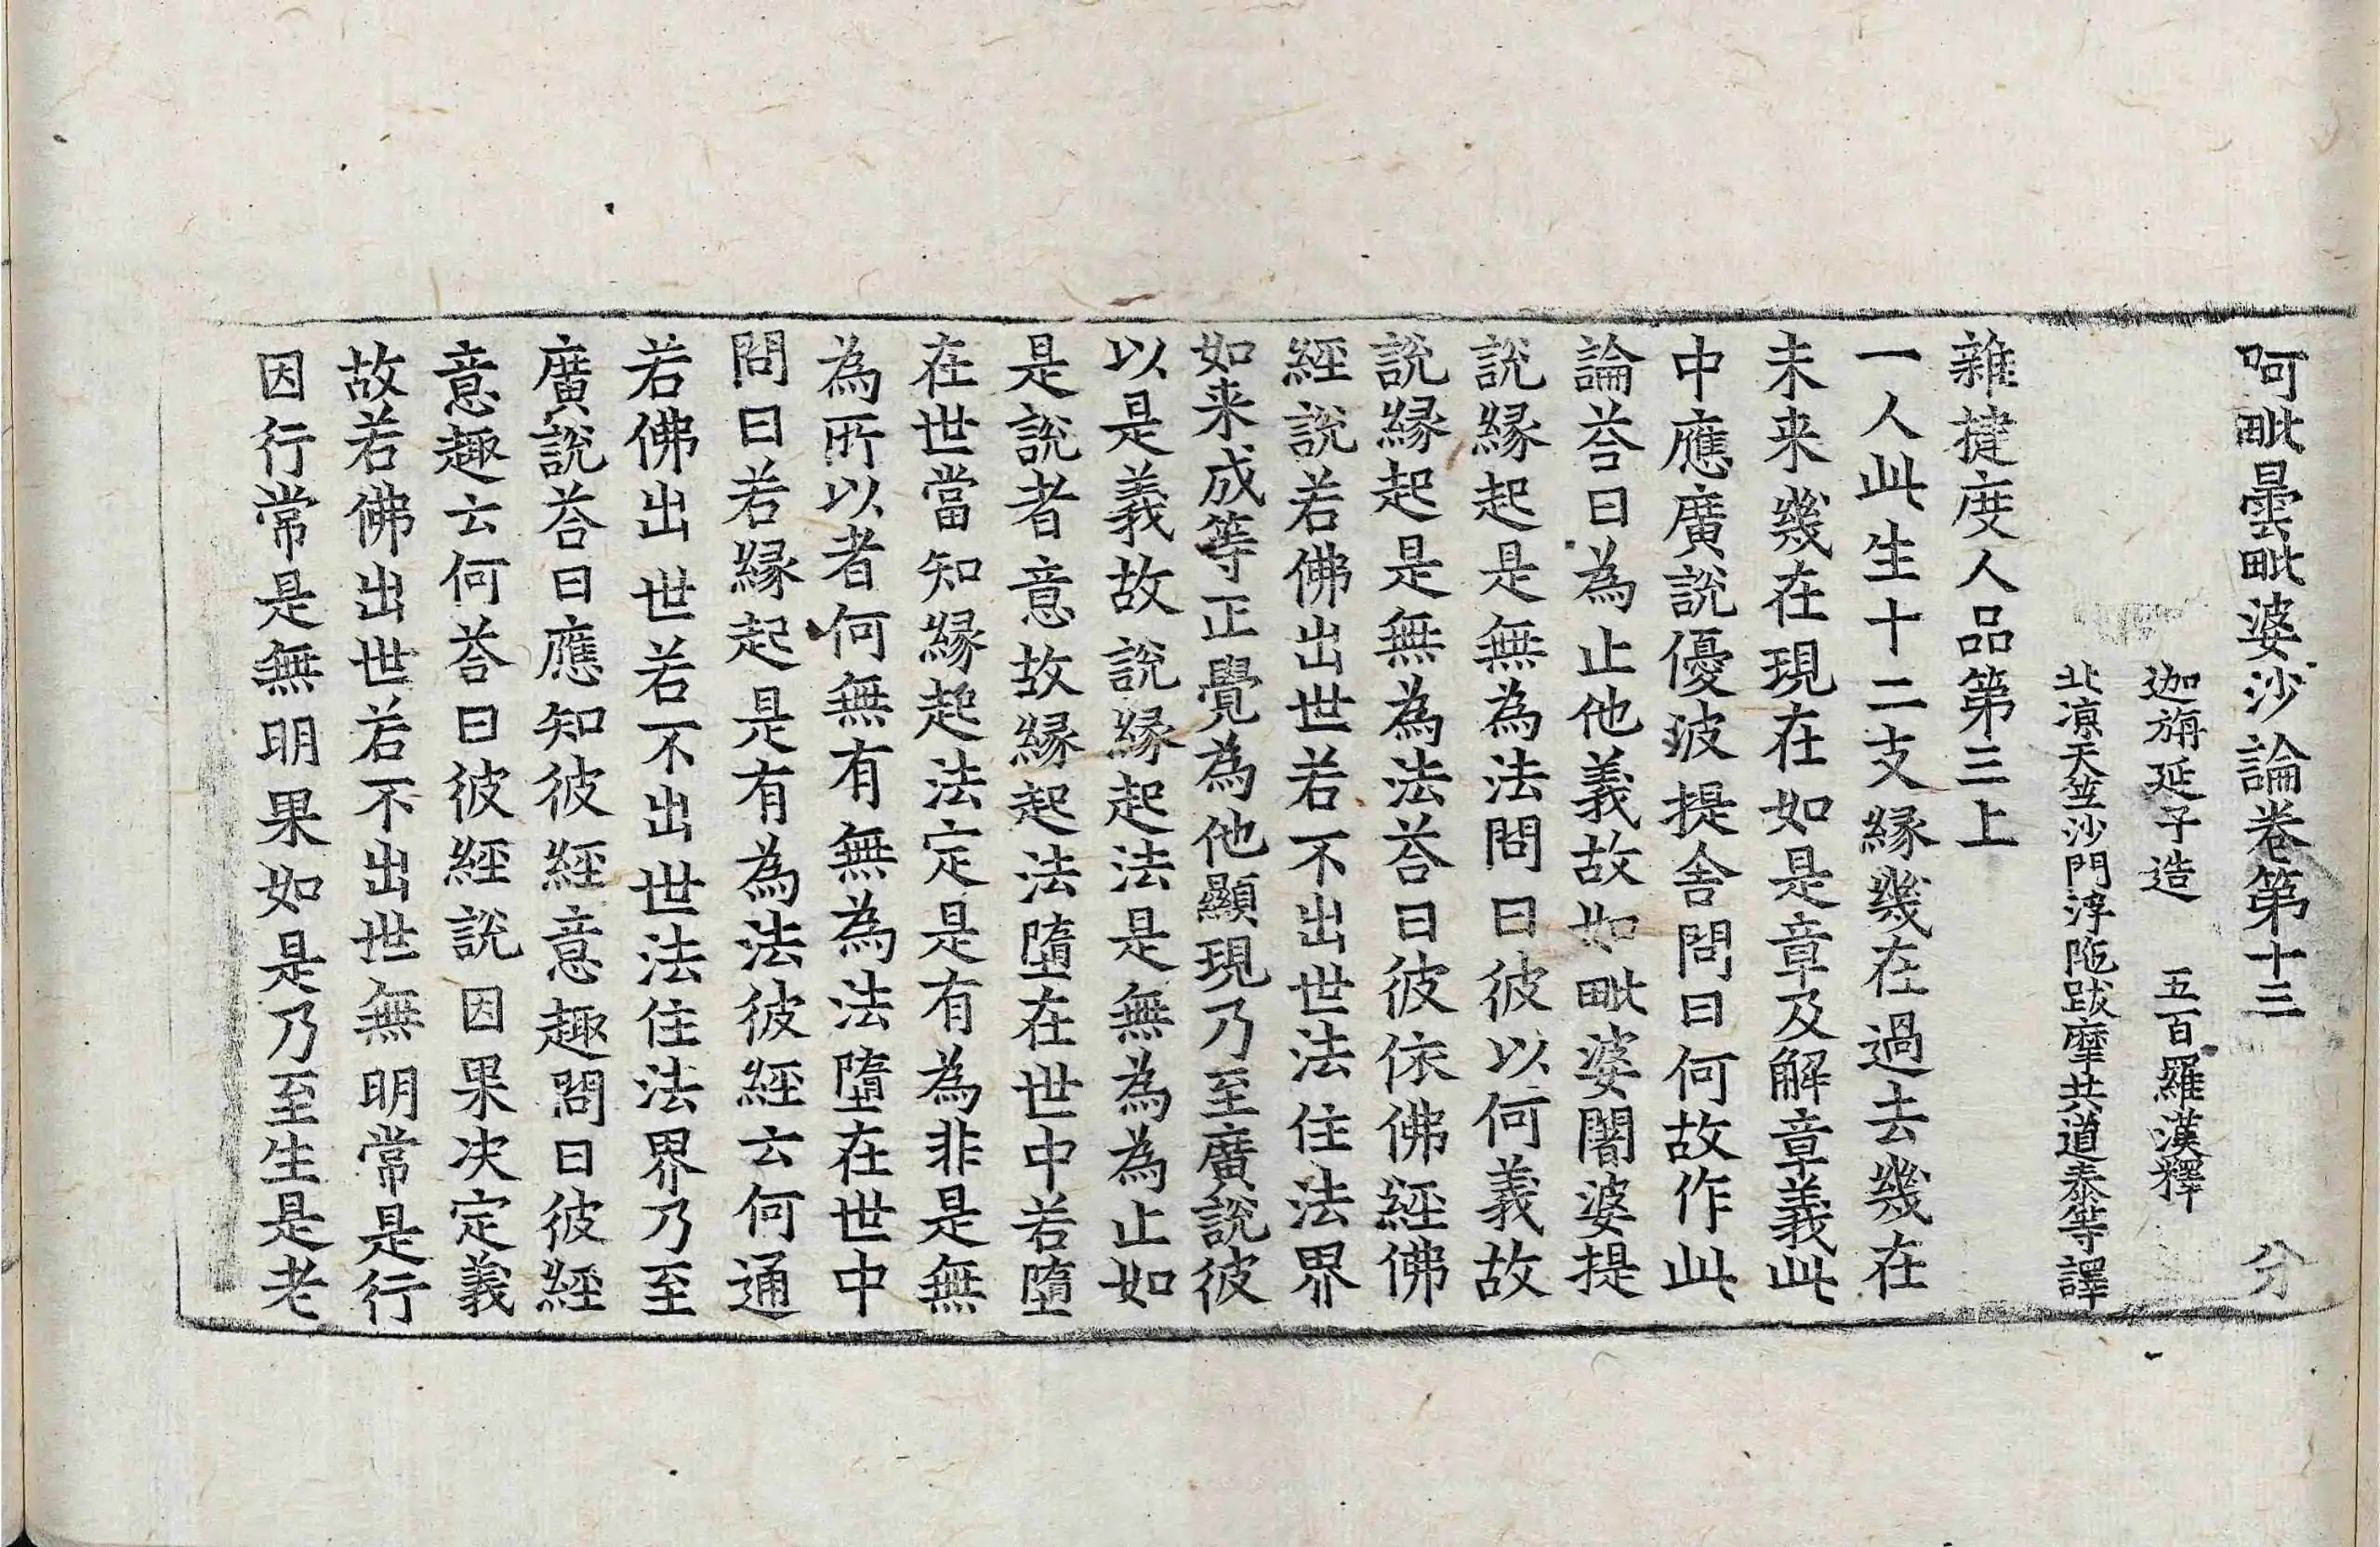 阿毗曇毗婆沙論卷第十三 分
迦旃延子造 五百羅漢釋
北涼天竺沙門浮陁跋摩共道泰等譯
雜揵度人品第三上
一人此生十二支縁幾在過去幾在
未来幾在現在如是章及解章義此
中應廣說優波提舍問曰何故作此
論荅曰為止他義故如毗婆闍婆提
說縁起是無為法問曰彼以何義故
說縁起是無為法荅曰彼依佛經佛
經說若佛出世若不出世法住法界
如来成等正覺為他顯現乃至廣說彼
以是義故說縁起法是無為為止如
是說者意故縁起法墮在世中若墮
在世當知縁起法定是有為非是無
為所以者何無有無為法墮在世中
問曰若縁起是有為法彼經云何通
若佛出世若不出世法住法界乃至
廣說荅曰應知彼經意趣問曰彼經
意趣云何荅曰彼經說因果决定義
故若佛出世若不出世無明常是行
因行常是無明果如是乃至生是老